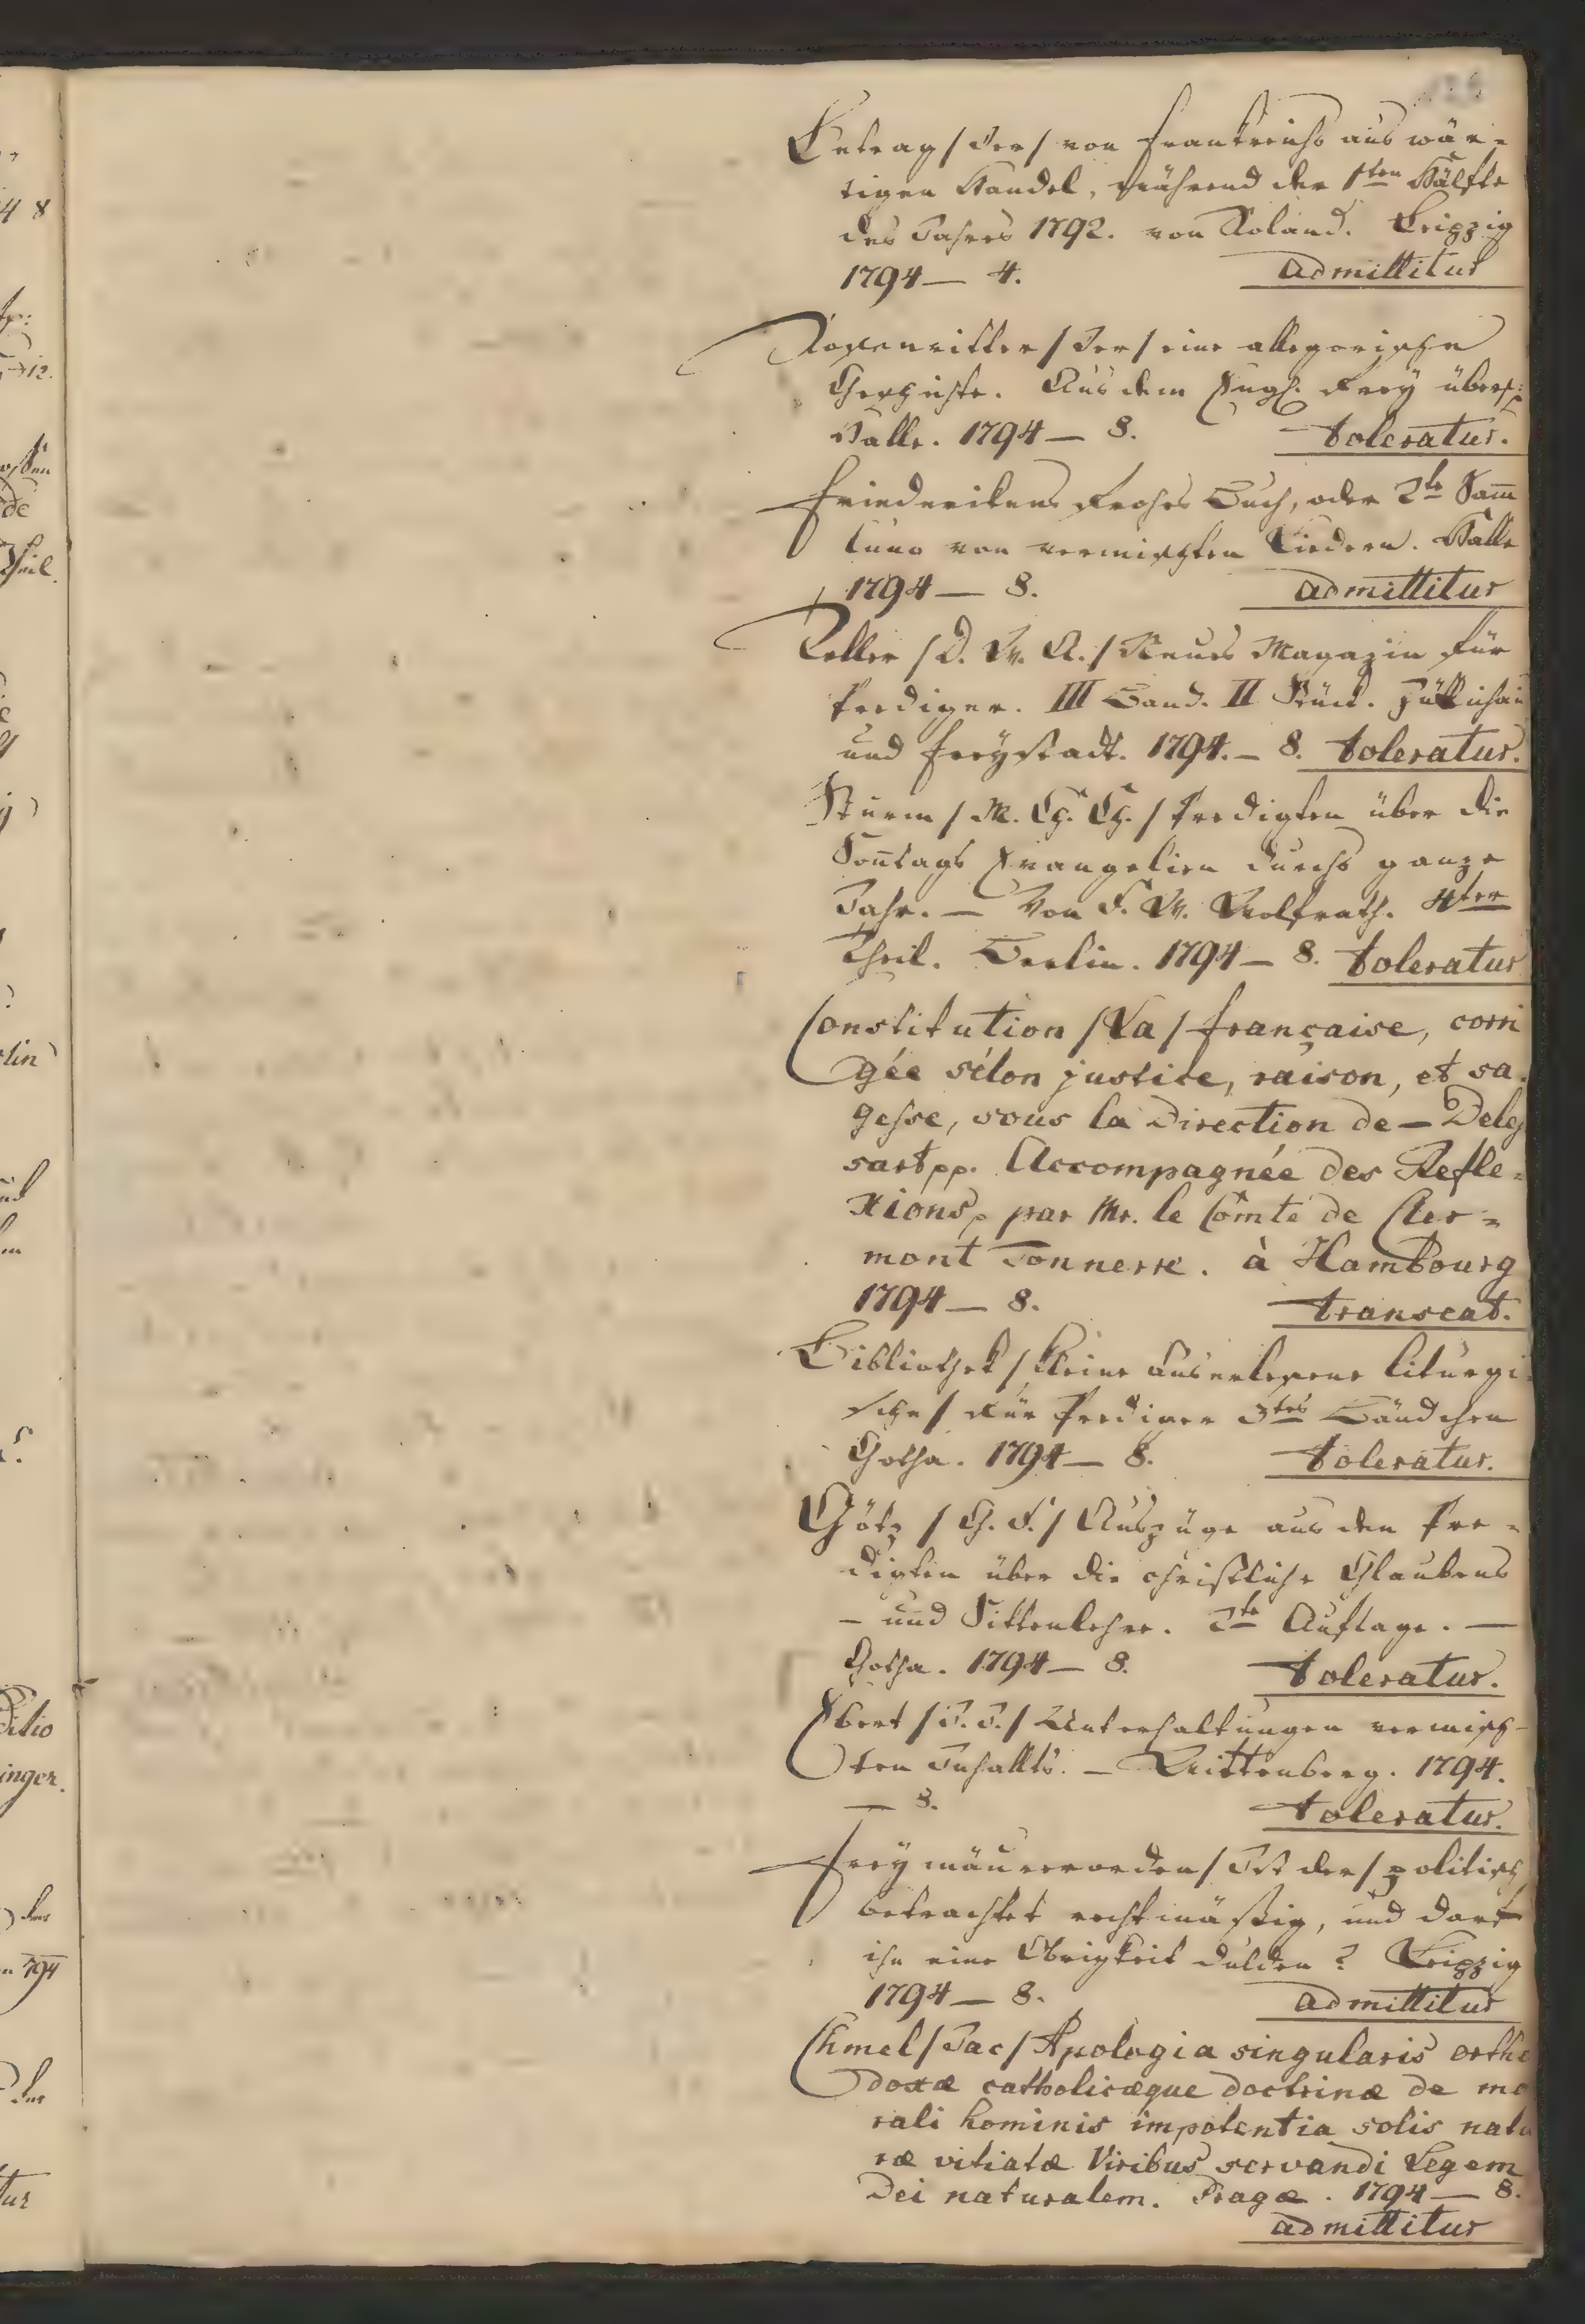 Betrag /der/ von Frankreichs auswär-
tigen Handel, während der 1ten Hälfte
des Jahres 1792. von Roland. Leipzig
1794 — 4. admittitur
Rosenritter /der/ eine allegorische
Geschichte. Aus dem Engl. frey übers:
Halle. 1794 — 8. toleratur.
Friederikens frohes Buch, oder 2te Sam̅
lung von vermischten Liedern. Halle
1794 — 8. admittitur
Teller /D. W. A./ Neues Magazin für
Prediger. III Band. II Stück. Züllichau
und Freystadt. 1794. — 8. toleratur.
Sturm /M. Ch. Ch./ Predigten über die
Son̅tags Evangelien durchs ganze
Jahr. — Von F. W. Wolfrath. 4ter
Theil. Berlin. 1794 — 8. toleratur
Constitution /La/ française, corri
gée sélon justice, raison, et sa
gesse, sous la Direction de — Deles
sart pp. Accompagnée des Refle-
xions, par Mr. le Comte de Cler-
mont Tonnerre. à Hambourg
1794 — 8. transeat.
Bibliothek /kleine auserlesene liturgi
sche/ für Prediger 3tes Bändchen
Gotha. 1794 — 8. toleratur.
Götz /G. F./ Auszüge aus den Pre-
digten über die christliche Glaubens
- und Sittenlehre. 2te Auflage. —
Gotha. 1794 — 8. toleratur.
Ebert /J. J./ Unterhaltungen vermisch-
ten Inhallts. — Wittenberg. 1794.
— 8. toleratur.
Freymäurerorden /Ist der/ politisch
betrachtet rechtmäßig, und darf
ihn eine Obrigkeit dulden? Leipzig
1794 — 8. admittitur
Chmel /Jac/ Apologia singularis ortho
doxæ catholicæque doctrinæ de mo
rali hominis impotentia solis natu
ræ vitiatæ Viribus servandi Legem
Dei naturalem. Pragæ. 1794 — 8.
admittitur